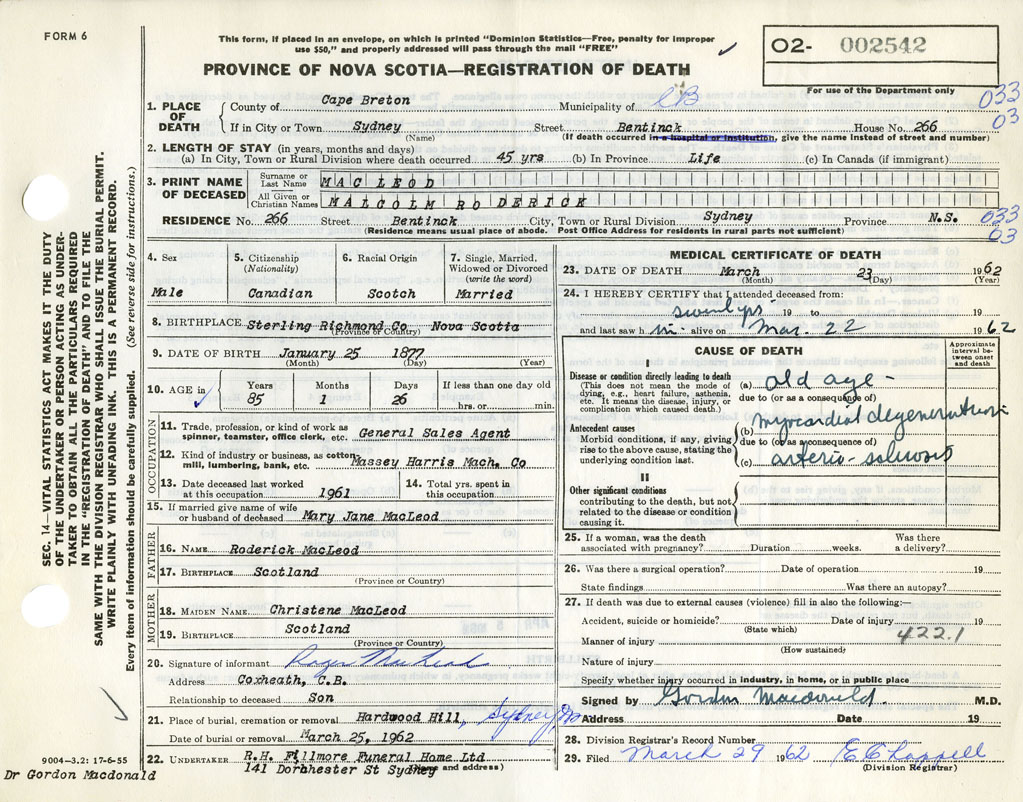 FORM 6
This form, if placed in an envelope, on which is printed "Dominion Statistics—Free, penalty for improper
use $50," and properly addressed will pass through the mail "FREE"
O2- 002542
PROVINCE OF NOVA SCOTIA—REGISTRATION OF DEATH
For use of the Department only
033
03
1. PLACE OF DEATH
County of Cape Breton Municipality of CB
If in City or Town Sydney Street Bentinck House No. 266
(Name) (If death occurred in a hospital or institution, give the name instead of street and number)
2. LENGTH OF STAY (in years, months and days)
(a) In City, Town or Rural Division where death occurred 45 yrs (b) In Province Life (c) In Canada (if immigrant)
3. PRINT NAME OF DECEASED
Surname or Last Name MAC LEOD
All Given or Christian Names MALCOLM RODERICK
RESIDENCE No. 266 Street Bentinck City, Town or Rural Division Sydney Province N.S.
(Residence means usual place of abode. Post Office Address for residents in rural parts not sufficient)
033
03
4. Sex
Male
5. Citizenship
(Nationality)
Canadian
6. Racial Origin
Scotch
7. Single, Married,
Widowed or Divorced
(write the word)
Married
8. BIRTHPLACE Sterling Richmond Co Nova Scotia
(Province or Country)
9. DATE OF BIRTH January 25 1877
(Month) (Day) (Year)
10. AGE in
Years Months Days If less than one day old
85 1 26 hrs. or min.
OCCUPATION
11. Trade, profession, or kind of work as
spinner, teamster, office clerk, etc. General Sales Agent
12. Kind of industry or business, as cotton
mill, lumbering, bank, etc. Massey Harris Mach. Co
13. Date deceased last worked
at this occupation 1961
14. Total yrs. spent in
this occupation
15. If married give name of wife
or husband of deceased Mary Jane MacLeod
FATHER
16. NAME Roderick MacLeod
17. BIRTHPLACE Scotland
(Province or Country)
MOTHER
18. MAIDEN NAME Christene MacLeod
19. BIRTHPLACE Scotland
(Province or Country)
20. Signature of informant Roger MacLeod
Address Coxheath, C.B.
Relationship to deceased Son
21. Place of burial, cremation or removal Hardwood Hill, Sydney
Date of burial or removal March 25, 1962
22. UNDERTAKER R.H. Fillmore Funeral Home Ltd
141 Dorchester St Sydney
(Name and address)
MEDICAL CERTIFICATE OF DEATH
23. DATE OF DEATH March 23 1962
(Month) (Day) (Year)
24. I HEREBY CERTIFY that I attended deceased from:
19 to 19
and last saw h im alive on Mar. 22 1962
CAUSE OF DEATH
Approximate
interval be-
tween onset
and death
I
Disease or condition directly leading to death
(This does not mean the mode of
dying, e.g., heart failure, asthenia,
etc. It means the disease, injury, or
complication which caused death.)
(a) old age -
due to (or as a consequence of)
Antecedent causes
Morbid conditions, if any, giving
rise to the above cause, stating the
underlying condition last.
(b) myocardial degeneration
due to (or as a consequence of)
(c) arterio-sclerosis
II
Other significant conditions
contributing to the death, but not
related to the disease or condition
causing it.
25. If a woman, was the death Was there
associated with pregnancy? Duration weeks. a delivery?
26. Was there a surgical operation? Date of operation 19
State findings Was there an autopsy?
27. If death was due to external causes (violence) fill in also the following:—
Accident, suicide or homicide? Date of injury 19
(State which) 422.1
Manner of injury
(How sustained)
Nature of injury
Specify whether injury occurred in industry, in home, or in public place
Signed by Gordon Macdonald M.D.
Address Date 19
28. Division Registrar's Record Number
29. Filed March 29 1962 E C Chappell
(Division Registrar)
SEC. 14—VITAL STATISTICS ACT MAKES IT THE DUTY
OF THE UNDERTAKER OR PERSON ACTING AS UNDER-
TAKER TO OBTAIN ALL THE PARTICULARS REQUIRED
IN THE "REGISTRATION OF DEATH" AND TO FILE THE
SAME WITH THE DIVISION REGISTRAR WHO SHALL ISSUE THE BURIAL PERMIT.
WRITE PLAINLY WITH UNFADING INK. THIS IS A PERMANENT RECORD.
Every item of information should be carefully supplied. (See reverse side for instructions.)
9004—3.2: 17-6-55
Dr Gordon Macdonald